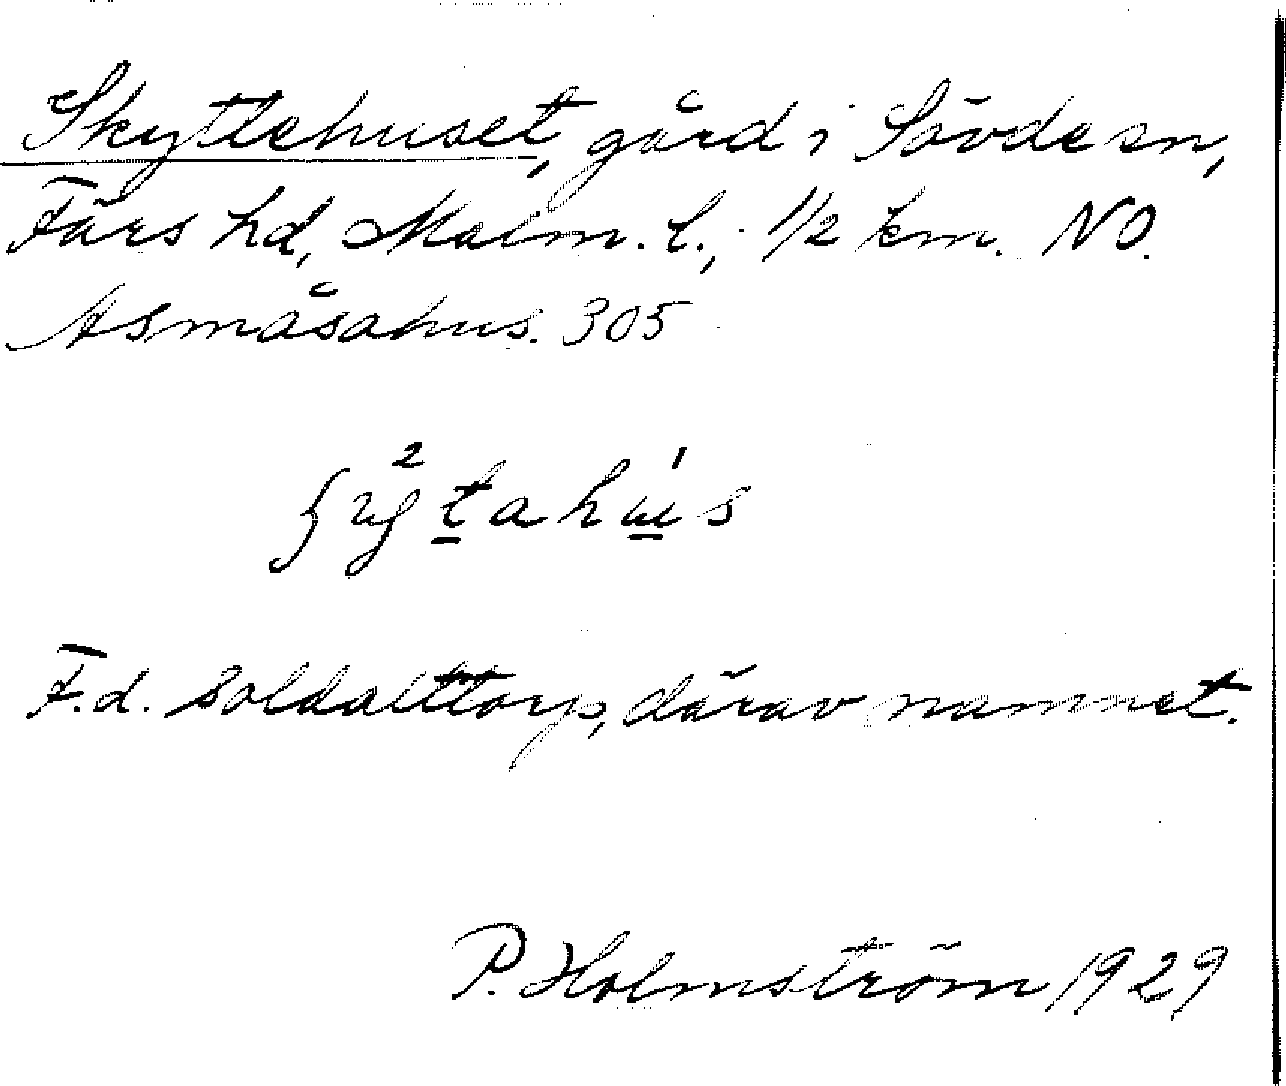 Skyttehuset, gård i Sövde sn,
Färs hd, Malm. l., 1/2 km. NO.
Asmåsahus. 305
F.d. soldattorp, därav namnet.
P. Holmström 1929